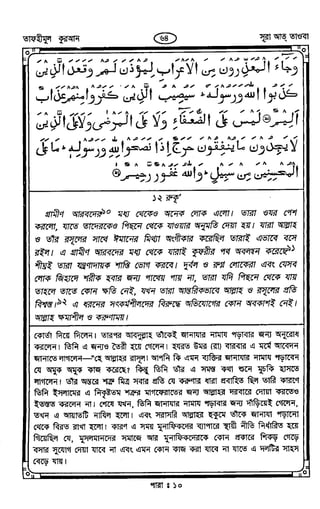 তাফহীমুল কুরআন
৬৪
সূরা আত্ তাওবা
وَجَاءَ الْمُعَذِّرُونَ مِنَ الْأَعْرَابِ لِيُؤْذَنَ لَهُمْ وَقَعَدَ الَّذِينَ
كَذَبُوا اللهَ وَرَسُولَهُ سَيُصِيبُ الَّذِينَ كَفَرُوا مِنْهُمْ عَذَابٌ
أَلِيمٌ لَيْسَ عَلَى الضُّعَفَاءِ وَلَا عَلَى الْمَرْضَى وَلَا عَلَى الَّذِينَ
لَا يَجِدُونَ مَا يُنْفِقُونَ حَرَجٌ إِذَا نَصَحُوا لِلَّهِ وَرَسُولِهِ مَا عَلَى
الْمُحْسِنِينَ مِنْ سَبِيلٍ وَاللهُ غَفُورٌ رَحِيمٌ
১২ রুকূ'
গ্রামীণ আরবদের৯০ মধ্য থেকেও অনেক লোক এলো। তারা ওযর পেশ
করলো, যাতে তাদেরকেও পিছনে থেকে যাওয়ার অনুমতি দেয়া হয়। যারা আল্লাহ
ও তাঁর রসূলের সাথে ঈমানের মিথ্যা অংগীকার করেছিল তারাই এভাবে বসে
রইল। এ গ্রামীণ আরবদের মধ্য থেকে যারাই কুফরীর পথ অবলম্বন করেছে৯১
শীঘ্রই তারা যন্ত্রণাদায়ক শাস্তি ভোগ করবে। দুর্বল ও রুগ্ন লোকেরা এবং যেসব
লোক জিহাদে শরীক হবার জন্য পাথেয় পায় না, তারা যদি পিছনে থেকে যায়
তাহলে তাতে কোন ক্ষতি নেই, যখন তারা আন্তরিকভাবে আল্লাহ ও রসূলের প্রতি
বিশ্বস্ত।৯২ এ ধরনের সৎকর্মশীলদের বিরুদ্ধে অভিযোগের কোন অবকাশই নেই।
আল্লাহ ক্ষমাশীল ও করুণাময়।
কোর্তা দিয়ে দিলেন। তারপর আবদুল্লাহ তাঁকেই জানাযার নামায পড়াবার জন্য অনুরোধ
করলেন। তিনি এ জন্যও তৈরী হয়ে গেলেন। হযরত উমর (রা) বারবার এ মর্মে আবেদন
জানাতে লাগলেন—"হে আল্লাহর রসূল! আপনি কি এমন ব্যক্তির জানাযার নামায পড়াবেন
যে অমুক অমুক কাজ করেছে। কিন্তু তিনি তাঁর এ সমস্ত কথা শুনে মুচকি হাসতে
লাগলেন। তাঁর অন্তরে শত্রু মিত্র সবার প্রতি যে করুণার ধারা প্রবাহিত ছিল তারি কারণে
তিনি ইসলামের এ নিকৃষ্টতম শত্রুর মাগফেরাতের জন্য আল্লাহর দরবারে দোয়া করতেও
ইতস্তত করলেন না। শেষে যখন, তিনি জানাযার নামায পড়াবার জন্য দাঁড়িয়েই গেলেন,
তখন এ আয়াতটি নাযিল হলো। এবং সরাসরি আল্লাহর হুকুমে তাঁকে জানাযা পড়ানো
থেকে বিরত রাখা হলো। কারণ এ সময় মুনাফিকদের ব্যাপারে স্থায়ী নীতি নির্ধারিত হয়ে
গিয়েছিল যে, মুসলমানদের সমাজে আর মুনাফিকদেরকে কোন প্রকারে শিকড় গেড়ে
বসার সুযোগ দেয়া যাবে না এবং এমন কোন কাজ করা যাবে না যাতে এ দলটির সাহস
বেড়ে যায়।
পারা : ১০